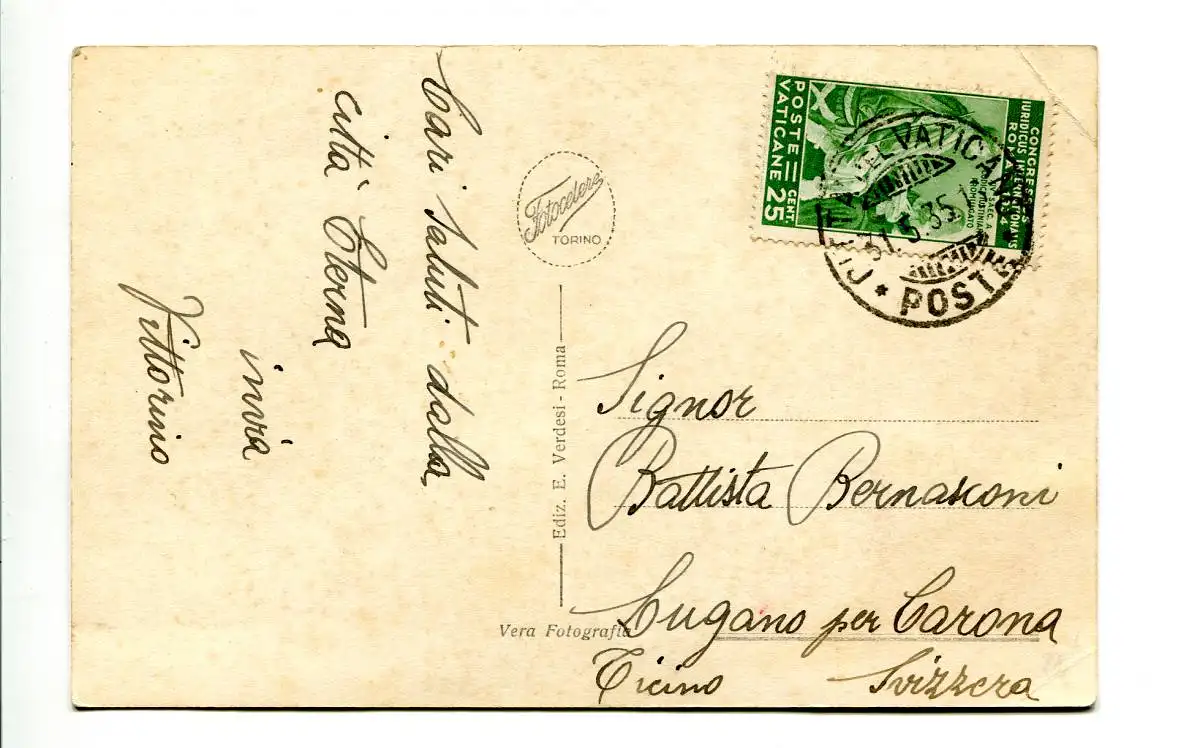 Cari saluti dalla
città Eterna
invia
Vittorino
Fotocelere
TORINO
Ediz. E. Verdesi - Roma
Vera Fotografia
POSTE VATICANE
CENT. 25
CONGRESSUS
IURIDICUS INTERNATIONALIS
CITTÀ DEL VATICANO
31.5.35
* POSTE
Signor
Battista Bernasconi
Lugano per Carona
Ticino Svizzera